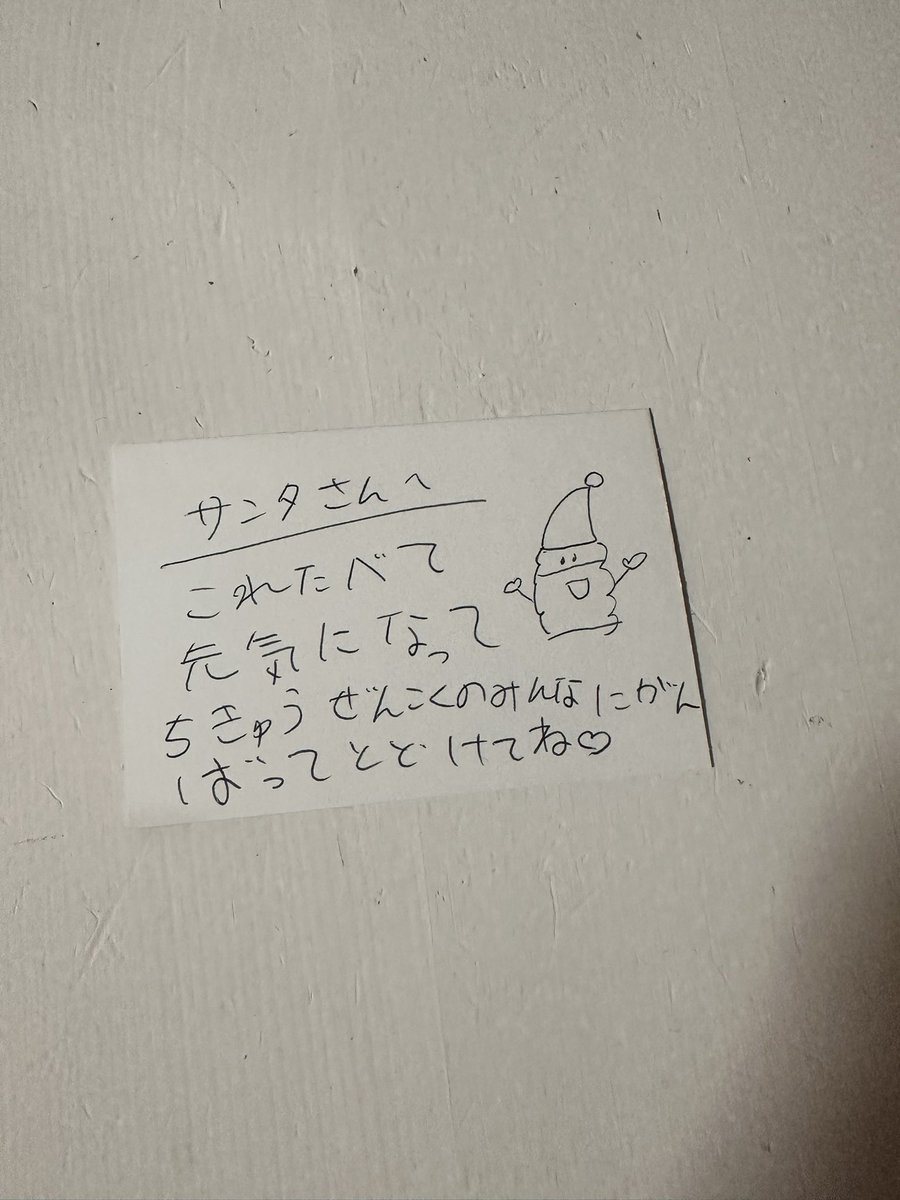 サンタさんへ
これたべて
元気になって
ちきゅうぜんこくのみんなにがん
ばってとどけてね♡